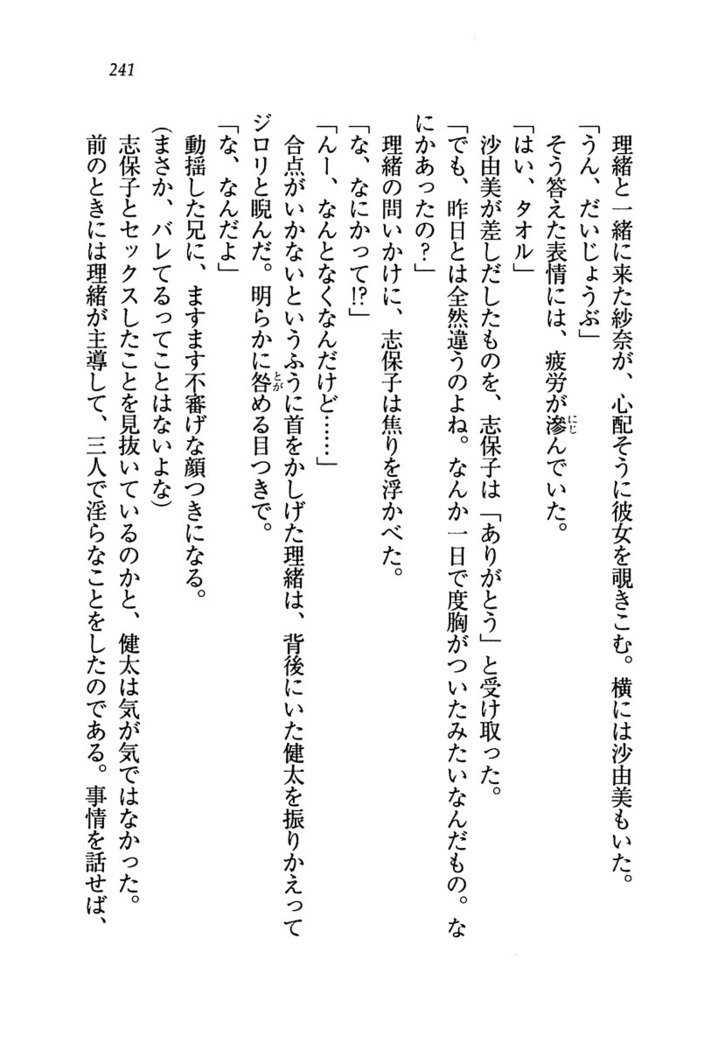 241
理緒と一緒に来た紗奈が、心配そうに彼女を覗きこむ。横には沙由美もいた。
「うん、だいじょうぶ」
そう答えた表情には、疲労が滲んでいた。
「はい、タオル」
沙由美が差しだしたものを、志保子は「ありがとう」と受け取った。
「でも、昨日とは全然違うのよね。なんか一日で度胸がついたみたいなんだもの。な
にかあったの？」
理緒の問いかけに、志保子は焦りを浮かべた。
「な、なにかって!?」
「んー、なんとなくなんだけど……」
合点がいかないというふうに首をかしげた理緒は、背後にいた健太を振りかえって
ジロリと睨んだ。明らかに咎める目つきで。
「な、なんだよ」
動揺した兄に、ますます不審げな顔つきになる。
(まさか、バレてるってことはないよな)
志保子とセックスしたことを見抜いているのかと、健太は気が気ではなかった。
前のときには理緒が主導して、三人で淫らなことをしたのである。事情を話せば、